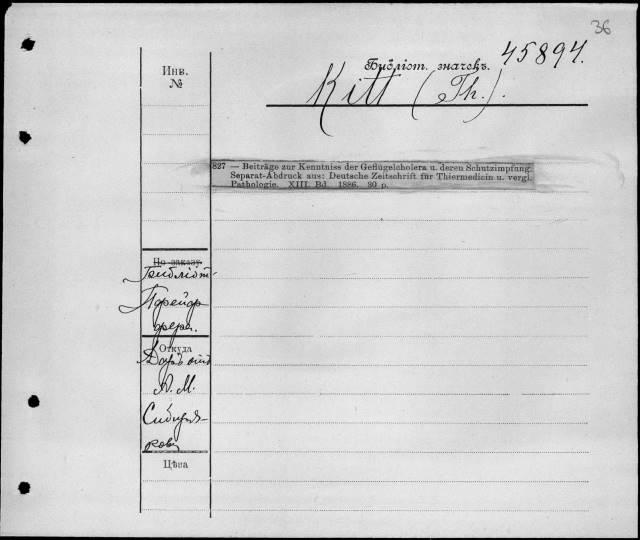 36
Библіот. значекъ. 45894.
Инв.
№
Kitt (Th.).
827 — Beiträge zur Kenntniss der Geflügelcholera u. deren Schutzimpfung.
Separat-Abdruck aus: Deutsche Zeitschrift für Thiermedicin u. vergl.
Pathologie. XIII. Bd. 1886. 30 p.
По заказу
Библіот.
Пфейф
фера.
Откуда
Даръ отъ
А. М.
Сибиря-
кова
Цѣна